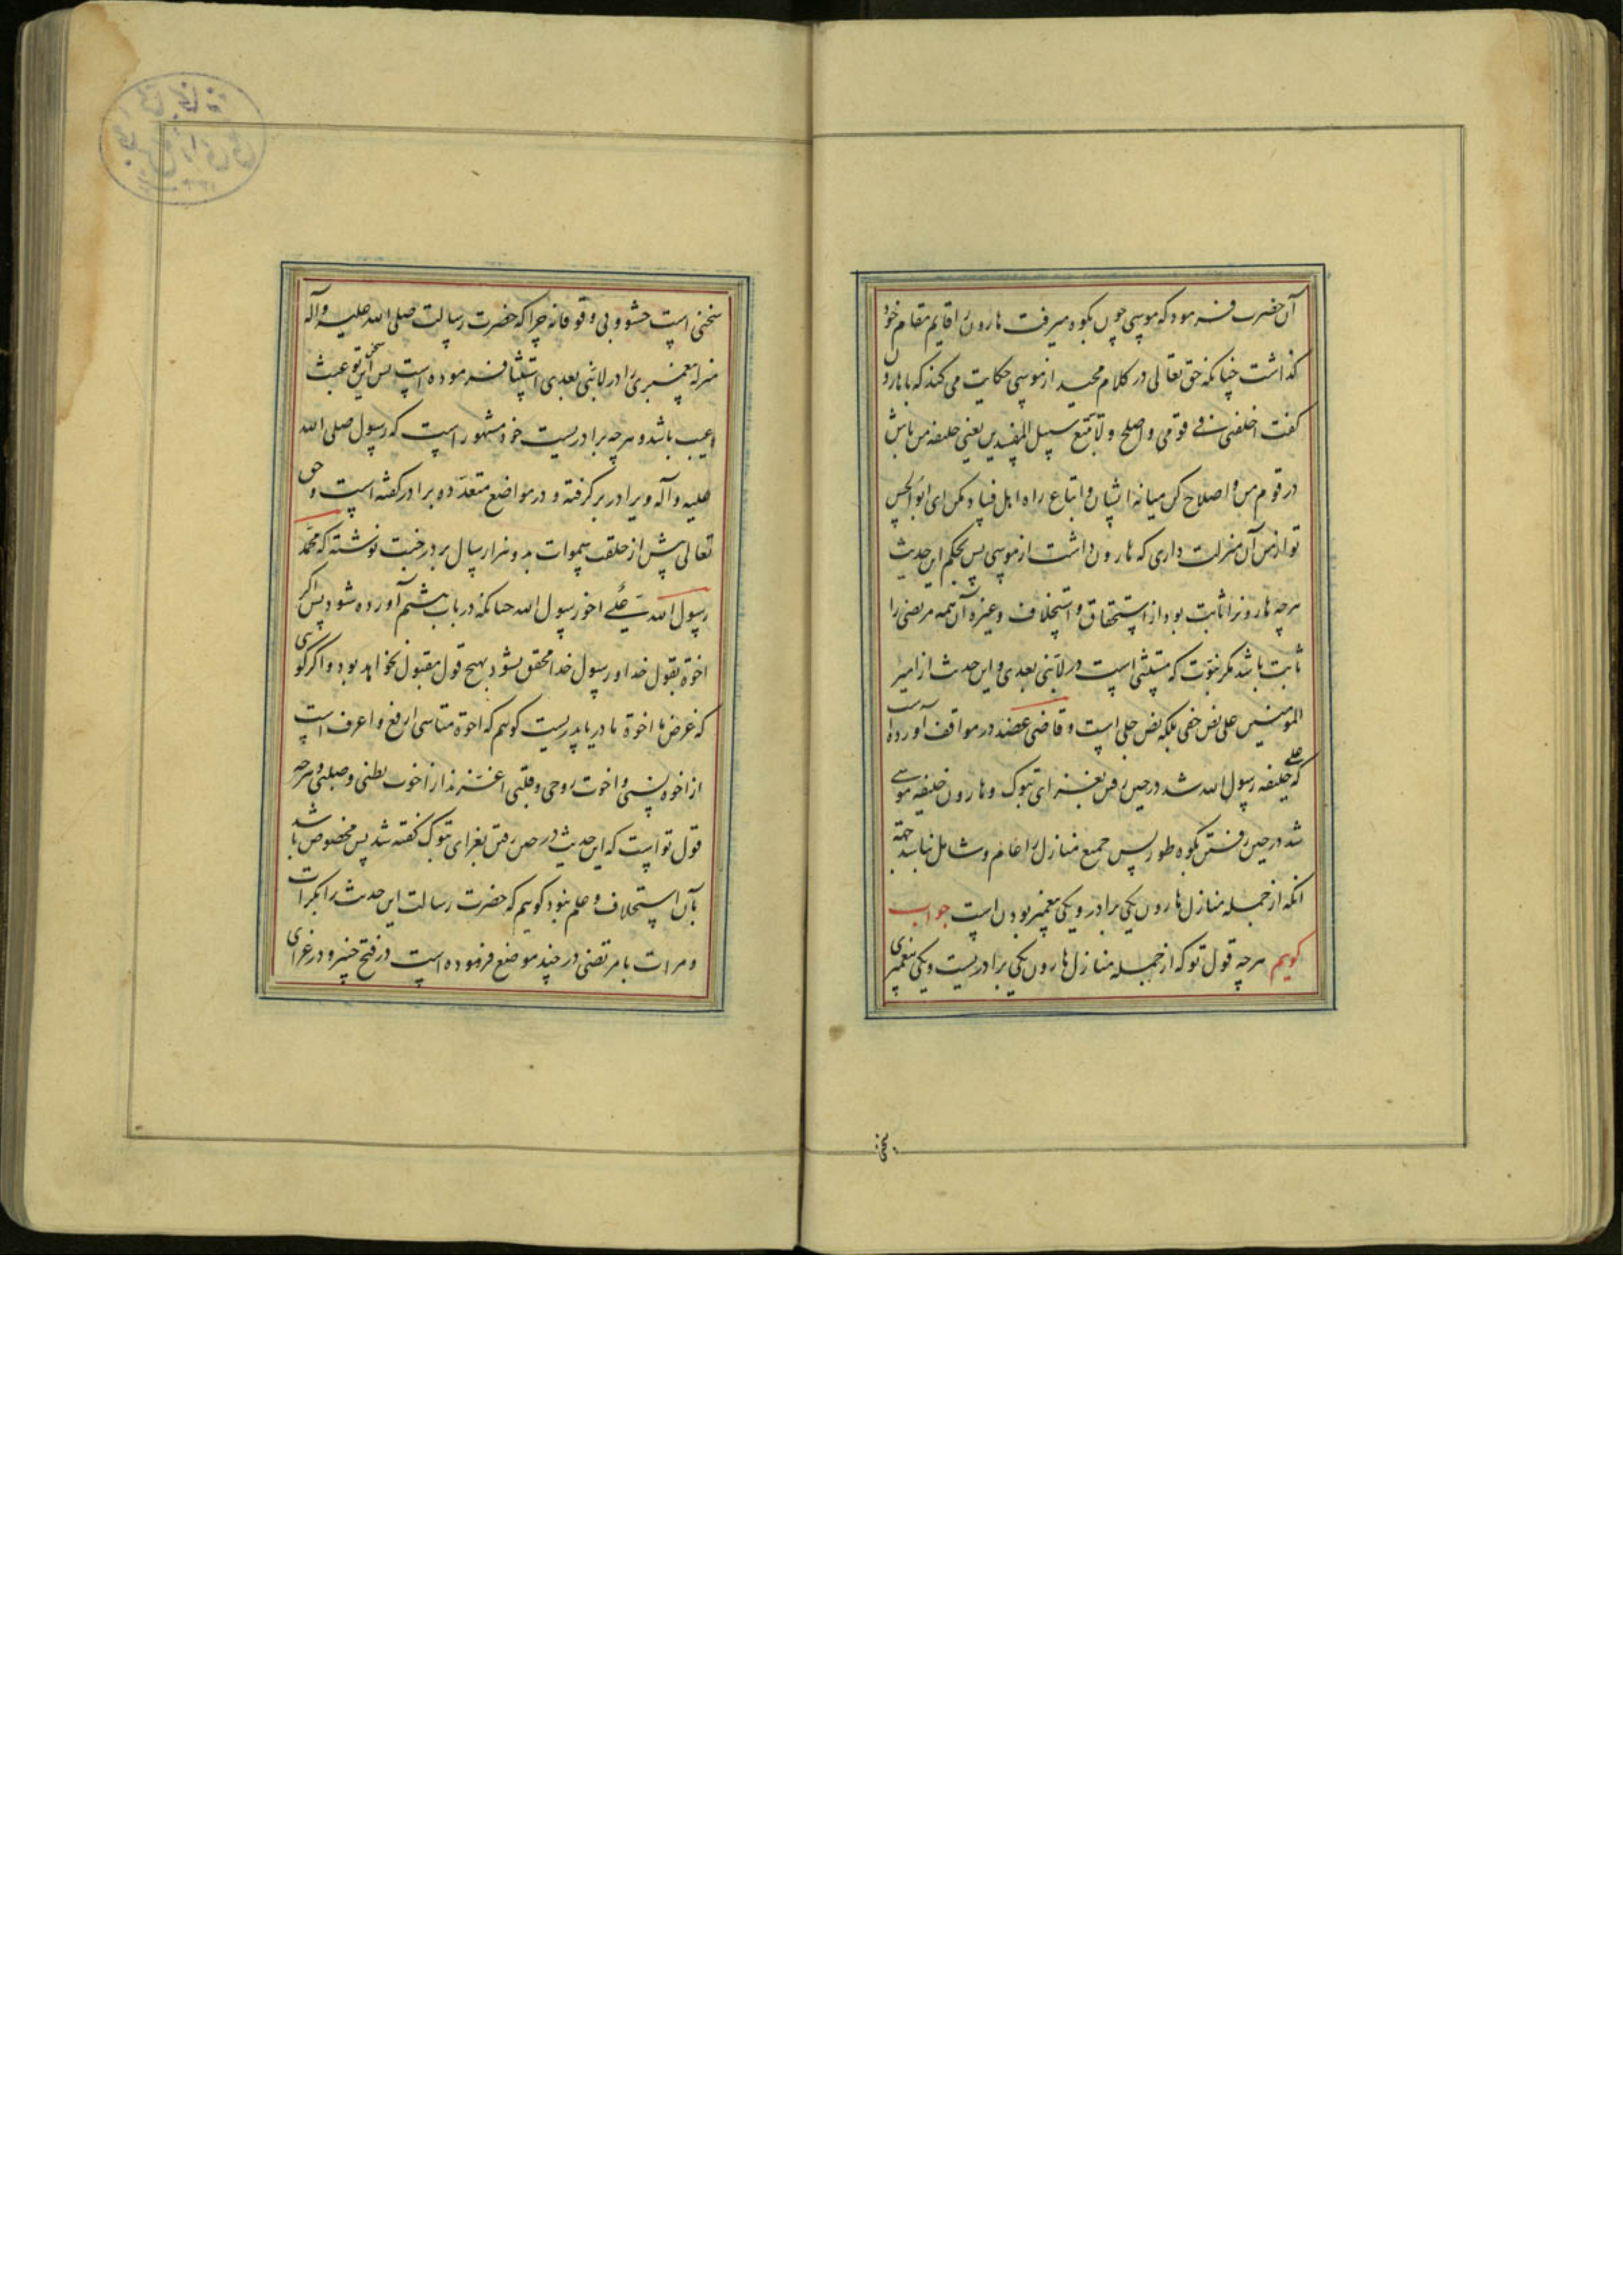 آن حضرت فرمود که موسی چون بکوه میرفت هارون را قایم مقام خود
کذاشت چنانکه حق تعالی در کلام مجید از موسی حکایت می کند که با هارون
کفت اخلفنی فی قومی و اصلح و لا تتبع سبیل المفسدین یعنی خلیفه من باش
در قوم من و اصلاح کن میانه ایشان و اتباع راه اهل فساد مکن ای ابوالحسن
تو از من آن منزلت داری که هارون داشت از موسی پس بحکم این حدیث
هرچه هارونرا ثابت بود از استحقاق و استخلاف و غیره آن همه مرتضی را
ثابت باشد مکر نبوت که مستثنی است در لا نبی بعدی و این حدیث از امیر
المومنین علی نص خفی بلکه نص جلی است و قاضی عضد در مواقف آورده است
که علی خلیفه رسول الله شد در حین رفتن بغزای تبوک و هارون خلیفه موسی
شد در حین رفتن بکوه طور پس جمیع منازل را عام و شامل نباشد جهة
انکه از جمله منازل هارون یکی برادر و یکی پیغمبر بودن است جواب
کویم هرچه قول تو که از جمله منازل هارون یکی برادریست و یکی پیغمبری
سخنی
سخنی است حشو و بی وقوفانه چرا که حضرت رسالت صلی الله علیه و آله
منزله پیغمبری را در لا نبی بعدی استثنا فرموده است پس این سخن تو عبث
و عیب باشد و هرچه برادریست خود مشهور است که رسول صلی الله
علیه و آله ویرا در بر کرفته و در مواضع متعدده برادر کفته است و حق
تعالی پیش از خلقت سموات بدو هزار سال بر در جنت نوشته که محمد
رسول الله علی اخو رسول الله چنانکه در باب هشتم آورده شود پس اکر
اخوة بقول خدا و رسول خدا محقق نشود بهیچ قول مقبول نخواهد بود و اکر کوی
که غرض ما اخوة مادر یا پدریست کویم که اخوة متاسی ارفع و اعرف است
از اخوه نسبی و اخوت روحی و قلبی اعز نداز اخوت بطنی و صلبی و هرچه
قول تو است که این حدیث در حین رفتن بغزای تبوک کفته شد پس مخصوص باشد
بآن استخلاف و عام نبود کویم که حضرت رسالت این حدیث را بکرات
و مرات با مرتضی در چند موضع فرموده است در فتح خیبر و در غزای